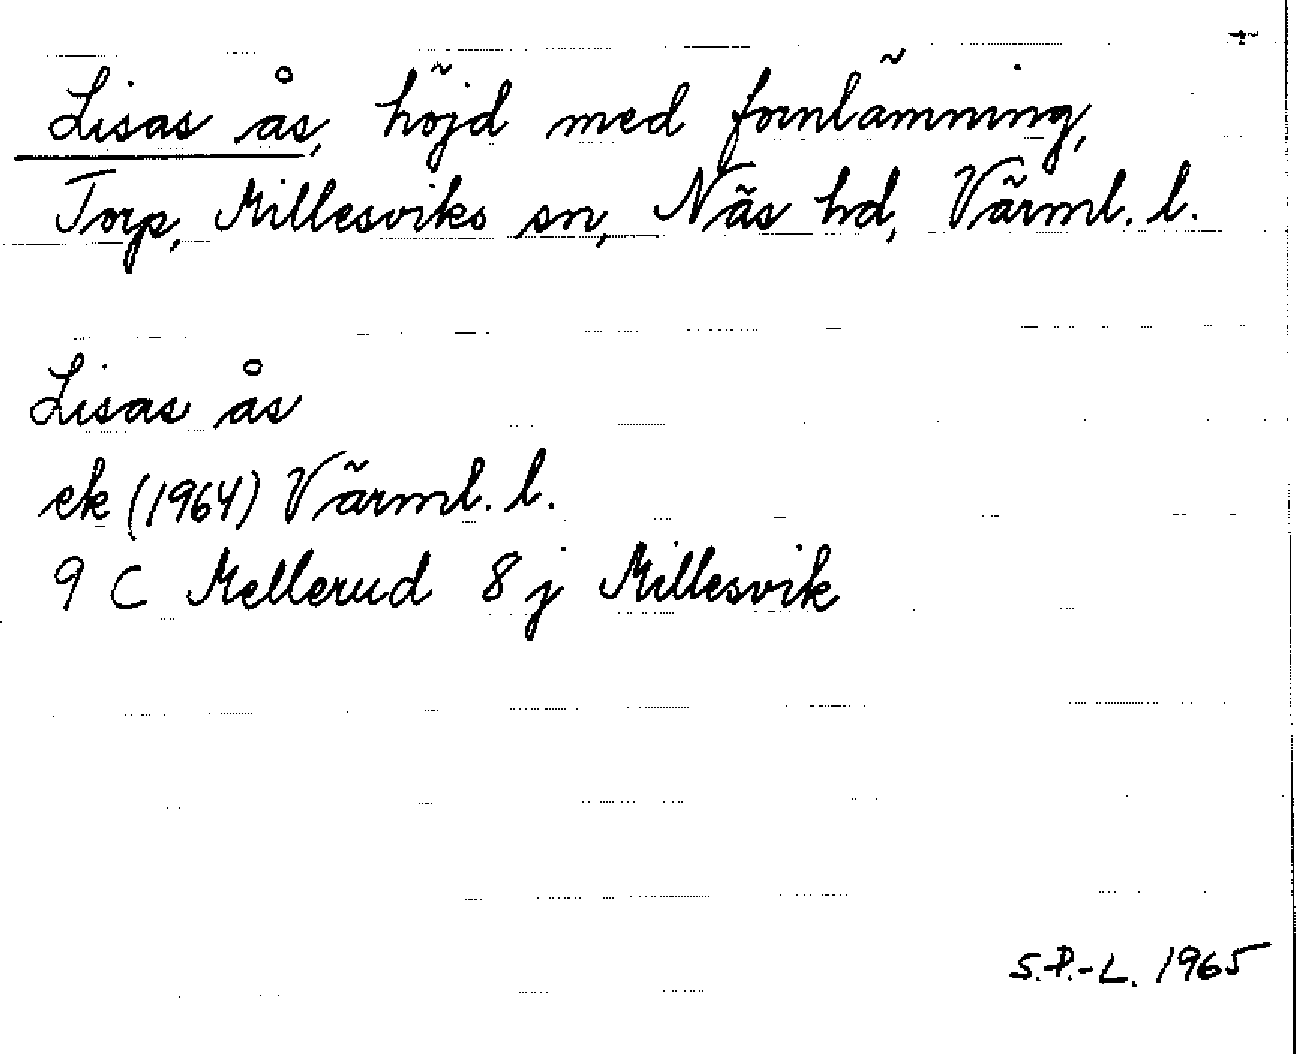 Lisas ås, höjd med fornlämning,
Torp, Millesviks sn, Näs hd, Värml. l.
Lisas ås
ek (1964) Värml. l.
9 C Mellerud 8 j Millesvik
S.P.-L. 1965